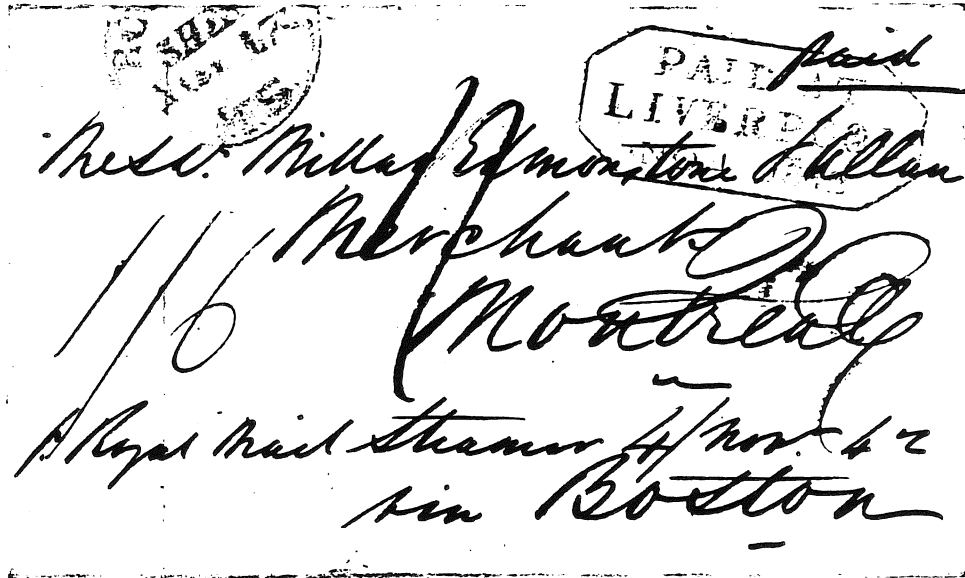 paid
PAID AT
LIVERPOOL
Messrs. Millar Edmonstone & Allan
Merchants
Montreal
1/6
p Royal Mail Steamer 4/ Nov. 42
via Boston